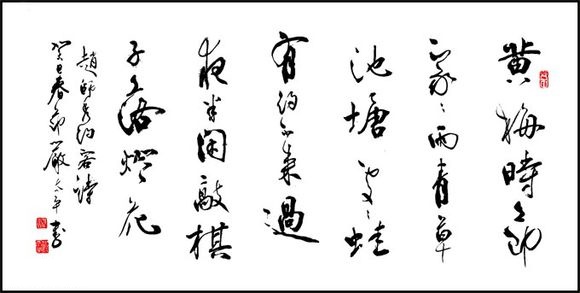 黄梅時節
家〻雨青草
池塘處〻蛙
有约不来過
夜半闲敲棋
子落燈花
趙師秀约客詩
癸巳春節嚴 平書